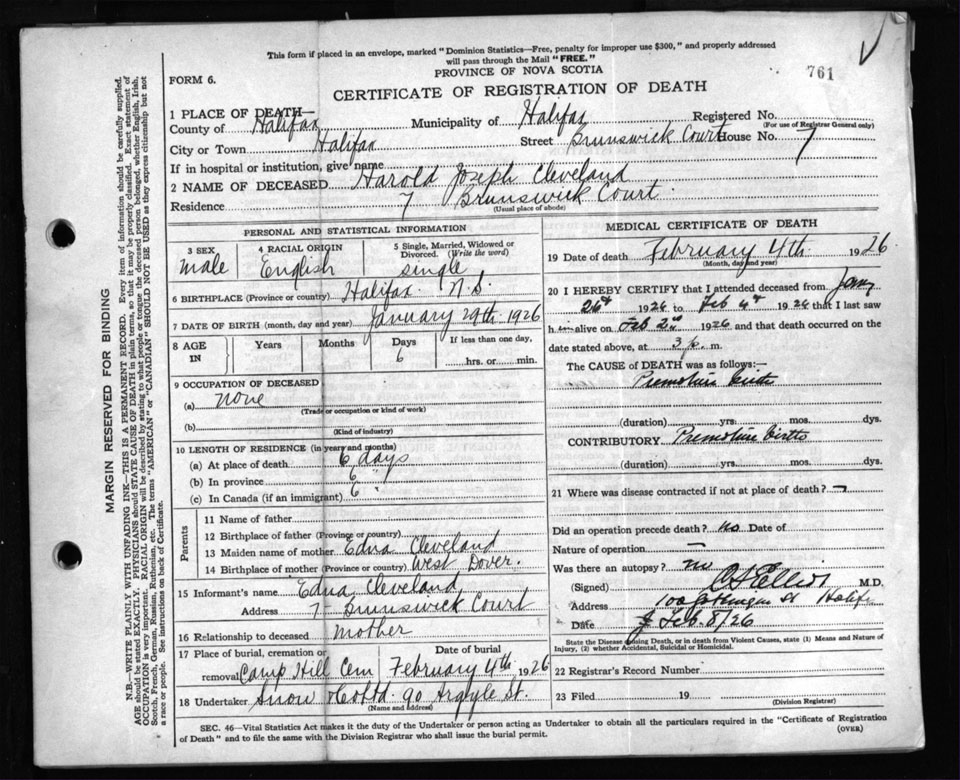 This form if placed in an envelope, marked "Dominion Statistics—Free, penalty for improper use $300," and properly addressed
will pass through the Mail "FREE."
PROVINCE OF NOVA SCOTIA
761
FORM 6.
CERTIFICATE OF REGISTRATION OF DEATH
1 PLACE OF DEATH—
County of Halifax Municipality of Halifax Registered No.
(For use of Registrar General only)
City or Town Halifax Street Brunswick Court House No. 7
If in hospital or institution, give name
2 NAME OF DECEASED Harold Joseph Cleveland
Residence 7 Brunswick Court
(Usual place of abode)
PERSONAL AND STATISTICAL INFORMATION
3 SEX 4 RACIAL ORIGIN 5 Single, Married, Widowed or
Divorced. (Write the word)
male English single
6 BIRTHPLACE (Province or country) Halifax N.S.
7 DATE OF BIRTH (month, day and year) January 29th 1926
8 AGE IN Years Months Days If less than one day,
6 hrs. or min.
9 OCCUPATION OF DECEASED
(a) none
(Trade or occupation or kind of work)
(b)
(Kind of industry)
10 LENGTH OF RESIDENCE (in years and months)
(a) At place of death 6 days
(b) In province 6 "
(c) In Canada (if an immigrant) 6 "
Parents
11 Name of father
12 Birthplace of father (Province or country)
13 Maiden name of mother Edna Cleveland
14 Birthplace of mother (Province or country) West Dover.
15 Informant's name Edna Cleveland
Address 7 Brunswick Court
16 Relationship to deceased mother
17 Place of burial, cremation or removal Date of burial
Camp Hill Cem February 4th 1926
18 Undertaker Snow & Co Ltd. 90 Argyle St.
(Name and address)
MEDICAL CERTIFICATE OF DEATH
19 Date of death February 4th 1926
(Month, day and year)
20 I HEREBY CERTIFY that I attended deceased from Jany
1926 to Feb 4th 1926 that I last saw
him alive on Feb 2nd 1926 and that death occurred on the
date stated above, at 3 p. m.
The CAUSE OF DEATH was as follows:—
Premature birth
(duration) yrs. mos. dys.
CONTRIBUTORY Premature birth
(duration) yrs. mos. dys.
21 Where was disease contracted if not at place of death? —
Did an operation precede death? No Date of
Nature of operation —
Was there an autopsy? no
(Signed) M.D.
Address St Halifx
Date Feb. 8/26
State the Disease causing Death, or in death from Violent Causes, state (1) Means and Nature of
Injury, (2) whether Accidental, Suicidal or Homicidal.
22 Registrar's Record Number
23 Filed 19
(Division Registrar)
SEC. 46—Vital Statistics Act makes it the duty of the Undertaker or person acting as Undertaker to obtain all the particulars required in the "Certificate of Registration
of Death" and to file the same with the Division Registrar who shall issue the burial permit.
(OVER)
MARGIN RESERVED FOR BINDING
N.B.—WRITE PLAINLY WITH UNFADING INK—THIS IS A PERMANENT RECORD. Every item of information should be carefully supplied.
AGE should be stated EXACTLY. PHYSICIANS should STATE CAUSE OF DEATH in plain terms, so that it may be properly classified. Exact statement of
OCCUPATION is very important. RACIAL ORIGIN will be described by stating to what people or tongue the deceased person belonged, whether English, Irish,
Scotch, French, German, Russian, Ruthenian, etc. The terms "AMERICAN" or "CANADIAN" SHOULD NOT BE USED as they express citizenship but not
a race or people. See instructions on back of Certificate.